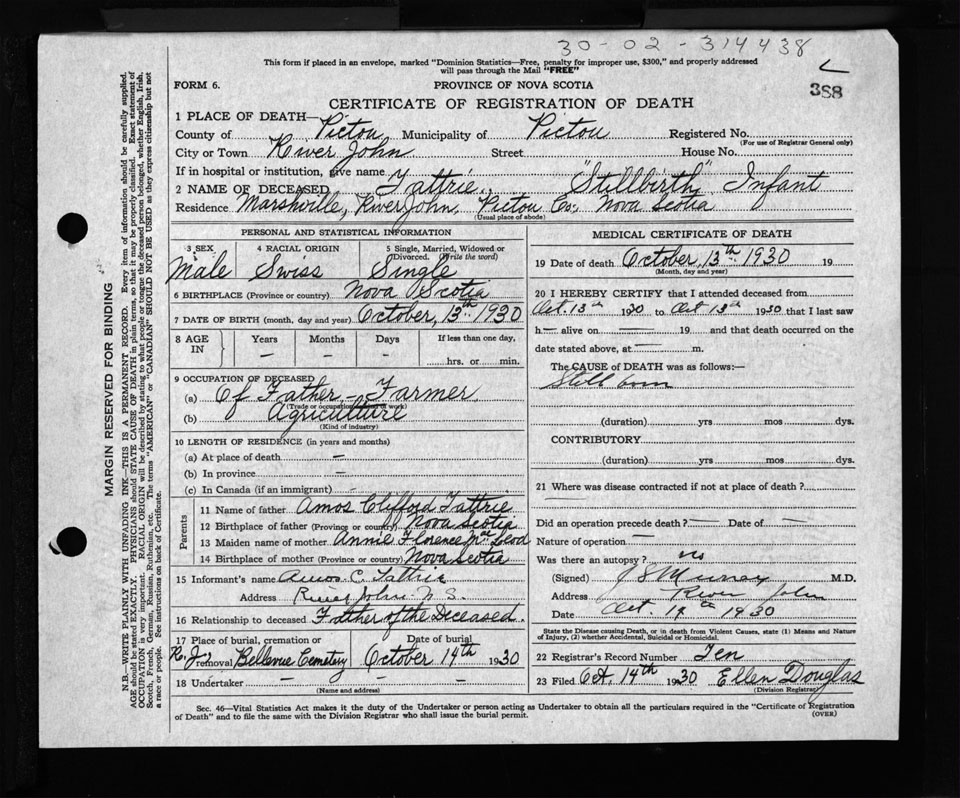 30-02-314438
This form if placed in an envelope, marked "Dominion Statistics—Free, penalty for improper use, $300," and properly addressed
will pass through the Mail "FREE"
FORM 6.
PROVINCE OF NOVA SCOTIA
388
CERTIFICATE OF REGISTRATION OF DEATH
1 PLACE OF DEATH—
County of Pictou Municipality of Pictou Registered No.
(For use of Registrar General only)
City or Town River John Street House No.
If in hospital or institution, give name
2 NAME OF DECEASED Tattrie, "Stillbirth" Infant
Residence Marshville, River John, Pictou Co., Nova Scotia
(Usual place of abode)
PERSONAL AND STATISTICAL INFORMATION
3 SEX 4 RACIAL ORIGIN 5 Single, Married, Widowed or
Divorced. (Write the word)
Male Swiss Single
6 BIRTHPLACE (Province or country) Nova Scotia
7 DATE OF BIRTH (month, day and year) October, 13th 1930
8 AGE IN Years Months Days If less than one day,
— — — hrs. or min.
9 OCCUPATION OF DECEASED
(a) Of Father — Farmer
(Trade or occupation, kind of work)
(b) Agriculture
(Kind of industry)
10 LENGTH OF RESIDENCE (in years and months)
(a) At place of death —
(b) In province —
(c) In Canada (if an immigrant) -
Parents
11 Name of father Amos Clifford Tattrie
12 Birthplace of father (Province or country) Nova Scotia
13 Maiden name of mother Annie Florence McLeod
14 Birthplace of mother (Province or country) Nova Scotia
15 Informant's name Amos C. Tattrie
Address River John N.S.
16 Relationship to deceased Father of the Deceased.
17 Place of burial, cremation or removal Date of burial
R.J. Bellevue Cemetery October 14th 1930
18 Undertaker — — —
(Name and address)
MEDICAL CERTIFICATE OF DEATH
19 Date of death October 13th 1930 19
(Month, day and year)
20 I HEREBY CERTIFY that I attended deceased from
Oct. 13th 1930 to Oct 13th 1930 that I last saw
h— alive on — 19 and that death occurred on the
date stated above, at — m.
The CAUSE OF DEATH was as follows:—
Still born
(duration) yrs mos dys.
CONTRIBUTORY
(duration) yrs mos dys.
21 Where was disease contracted if not at place of death?
Did an operation precede death? — Date of —
Nature of operation —
Was there an autopsy? no
(Signed) Murray M.D.
Address River John
Date Oct. 14th 1930
State the Disease causing Death, or in death from Violent Causes, state (1) Means and Nature
of Injury, (2) whether Accidental, Suicidal or Homicidal.
22 Registrar's Record Number Ten
23 Filed Oct. 14th 1930 Ellen Douglas
(Division Registrar)
Sec. 46—Vital Statistics Act makes it the duty of the Undertaker or person acting as Undertaker to obtain all the particulars required in the "Certificate of Registration
of Death" and to file the same with the Division Registrar who shall issue the burial permit.
(OVER)
MARGIN RESERVED FOR BINDING
N.B.—WRITE PLAINLY WITH UNFADING INK—THIS IS A PERMANENT RECORD. Every item of information should be carefully supplied.
AGE should be stated EXACTLY. PHYSICIANS should STATE CAUSE OF DEATH in plain terms, so that it may be properly classified. Exact statement of
OCCUPATION is very important. RACIAL ORIGIN will be described by stating to what people or tongue the deceased person belonged, whether English, Irish,
Scotch, French, German, Russian, Ruthenian, etc. The terms "AMERICAN" or "CANADIAN" SHOULD NOT BE USED as they express citizenship but not
a race or people. See instructions on back of Certificate.